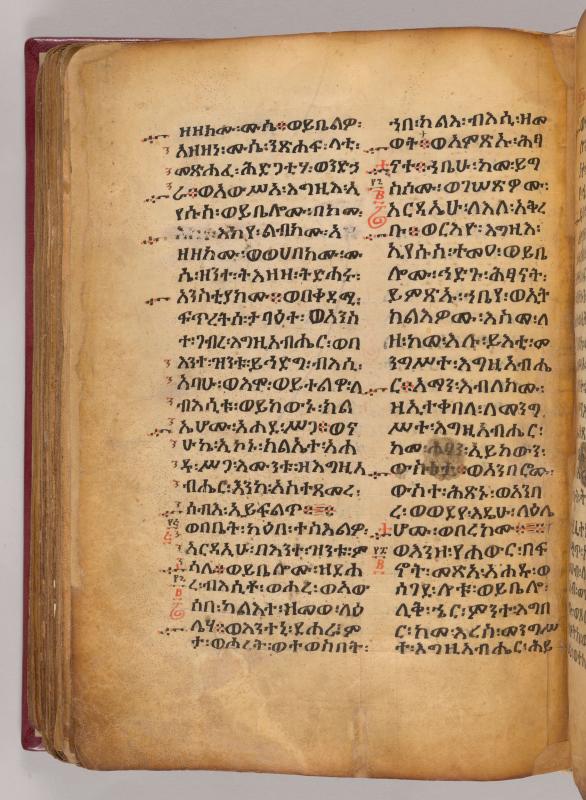 ዘዘክሙ፡ሙሴ፡ወይቤልዎ፡
አዘዘነ፡ሙሴ፡ንጽሐፍ፡ላቲ፡
መጽሐፈ፡ሕድጋቲሃ፡ወንድኃ
ራ፡ወአውሥአ፡እግዚእ፡ኢ
የሱስ፡ወይቤሎሙ፡በከመ፡
እከየ፡ልብክሙ፡አ
ዘዘክሙ፡ወወሀበክሙ፡ሙ
ሴ፡ዘንተ፡ትእዛዘ፡ትድሐሩ፡
አንስቲያክሙ፡ወበቀዳሚ፡
ፍጥረትሰ፡ተባዕተ፡ወአንስ
ተ፡ገብረ፡እግዚአብሔር፡ወበ
እንተ፡ዝንቱ፡ይኅድግ፡ብእሲ፡
አባሁ፡ወእሞ፡ወይተልዋ፡ለ
ብእሲቱ፡ወይከውኑ፡ክል
ኤሆሙ፡አሐደ፡ሥጋ፡ወና
ሁኬ፡ኢኮኑ፡ክልኤተ፡አሐ
ዱ፡ሥጋ፡እሙንቱ፡ዘእግዚአ
ብሔር፡እንከ፡አስተጻመረ፡
ሰብእ፡ኢይፍልጥ።
ወበቤት፡ካዕበ፡ተስእልዎ፡
አርዳኢሁ፡በእንተ፡ዝንቱ፡ም
ሳሌ፡ወይቤሎሙ፡ዘደሐ
ረ፡ብእሲቶ፡ወሖረ፡ወአው
ሰበ፡ካልእተ፡ዘመወ፡ላዕ
ሌሃ፡ወእንተኒ፡ደሐረ፡ም
ታ፡ወሖረት፡ወተወስበት፡
ኀበ፡ካልእ፡ብእሲ፡ዘመ
ወት፡ወአምጽኡ፡ሕፃ
ናተ፡ኀቤሁ፡ከመ፡ይግ
ስሶሙ፡ወገሠጽዎሙ፡
አርዳኢሁ፡ለእለ፡አቅረ
ቡ፡ወርእዮ፡እግዚእ፡
ኢየሱስ፡ተምዐ፡ወይቤ
ሎሙ፡ኅድጉ፡ሕፃናት፡
ይምጽኡ፡ኀቤየ፡ወኢት
ክልእዎሙ፡እስመ፡ለ
ዘ፡ከመ፡እሉ፡ይእቲ፡መ
ንግሥተ፡እግዚአብሔ
ር፡አማን፡እብለክሙ፡
ዘኢተቀበለ፡ለመንግ
ሥተ፡እግዚአብሔር፡
ከመ፡ሕፃን፡ኢይከውን፡
ውስቴታ፡ወአንበሮሙ፡
ውስተ፡ሕጽኑ፡ወአንበ
ረ፡ወወደየ፡እዴሁ፡ላዕሌ
ሆሙ፡ወባረኮሙ።
ወእንዘ፡የሐውር፡በፍ
ኖት፡መጽአ፡አሐዱ፡ወ
ሰገደ፡ሎቱ፡ወይቤሎ፡
ሊቅ፡ኄር፡ምንተ፡እግበ
ር፡ከመ፡እረስ፡መንግሥ
ተ፡እግዚአብሔር፡ሕይ